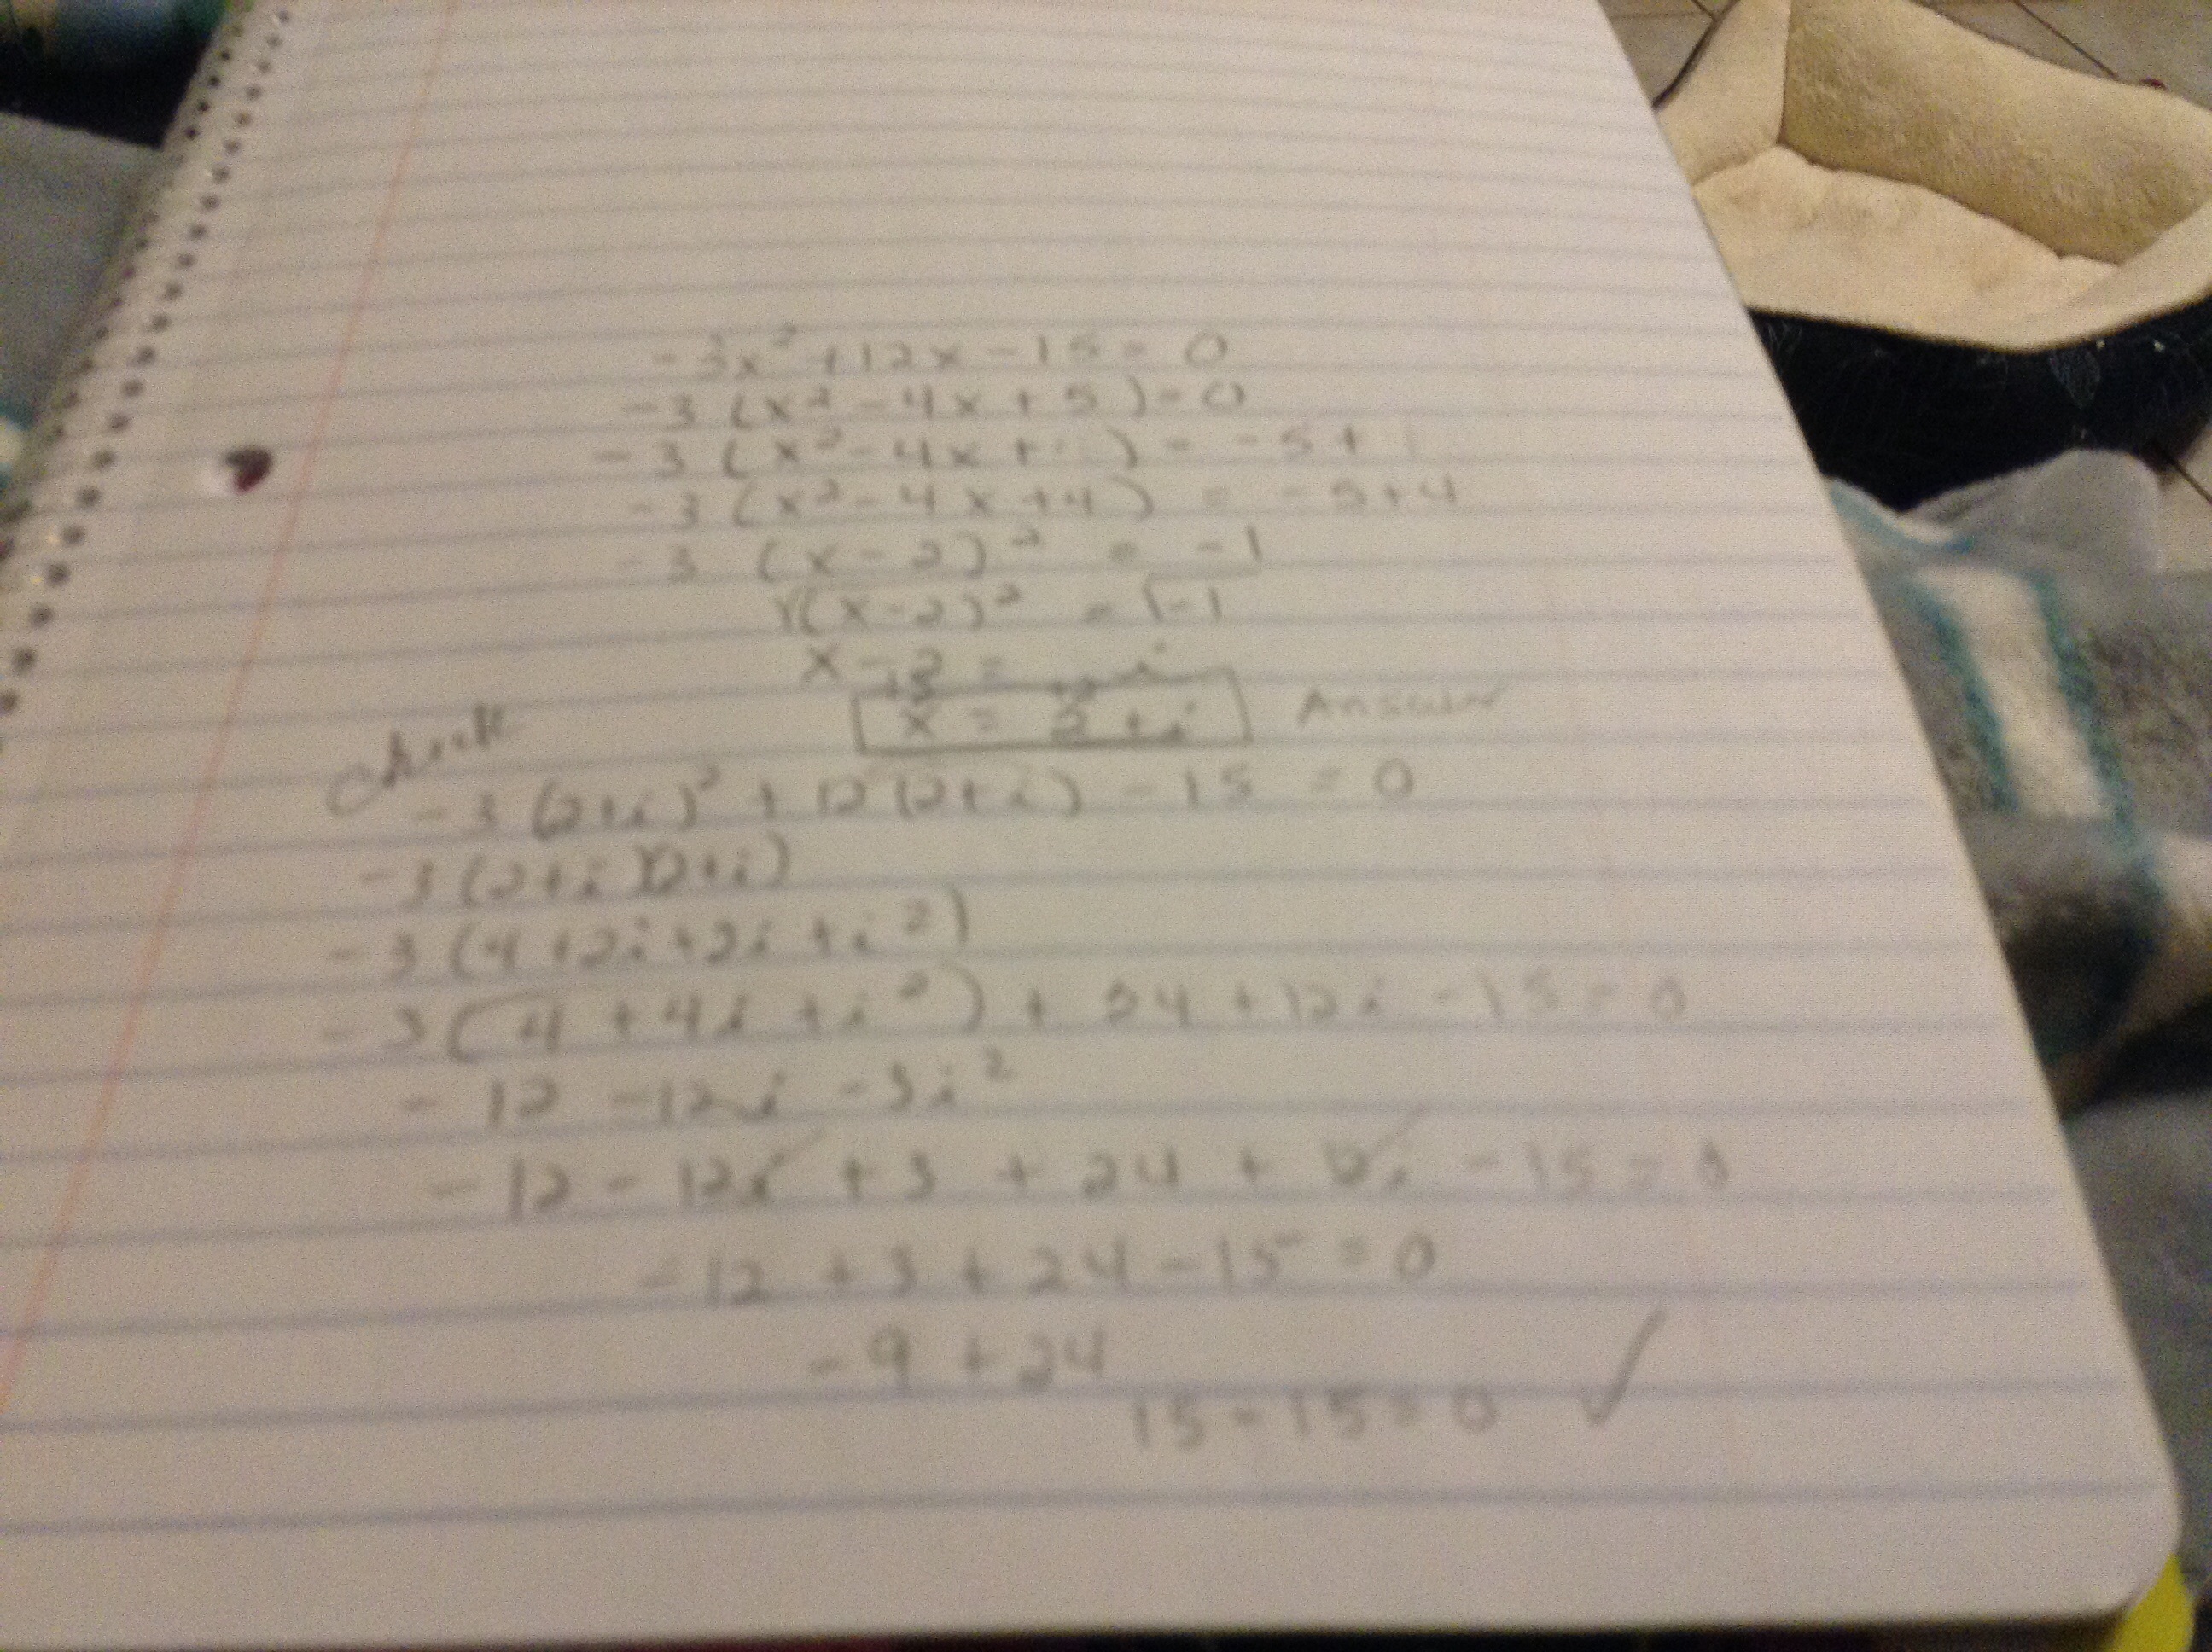 -3x² + 12x - 15 = 0
-3 (x² - 4x + 5) = 0
-3 (x² - 4x + ) = -5 +
-3 (x² - 4x + 4) = -5 + 4
-3 (x - 2)² = -1
√(x - 2)² = √-1
x - 2 = i
+2 +2
x = 2 + i Answer
check
-3 (2+i)² + 12 (2+i) - 15 = 0
-3 (2+i)(2+i)
-3 (4 + 2i + 2i + i²)
-3 (4 + 4i + i²) + 24 + 12i - 15 = 0
- 12 - 12i - 3i²
- 12 - 12i + 3 + 24 + 12i - 15 = 0
- 12 + 3 + 24 - 15 = 0
- 9 + 24
15 - 15 = 0 ✓